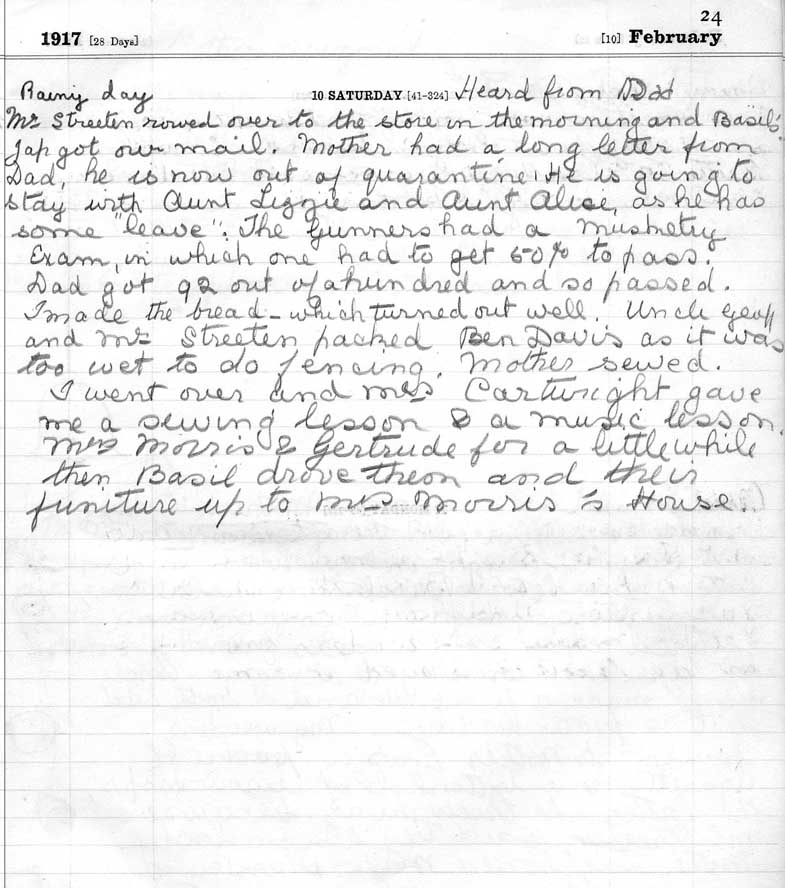 24
1917 [28 Days] [10] February
Rainy day 10 SATURDAY [41-324] Heard from Dad
Mr Streeten rowed over to the store in the morning and Basil's
Jap got our mail. Mother had a long letter from
Dad, he is now out of quarantine. He is going to
stay with Aunt Lizzie and Aunt Alice, as he has
some "leave". The Gunners had a musketry
Exam, in which one had to get 60% to pass.
Dad got 92 out of a hundred and so passed.
I made the bread - which turned out well. Uncle Geoff
and Mr Streeten packed Ben Davis as it was
too wet to do fencing. Mother sewed.
I went over and Mrs Cartwright gave
me a sewing lesson & a music lesson.
Mrs Morris & Gertrude for a little while
then Basil drove them and their
funiture up to Mrs Morris's House.